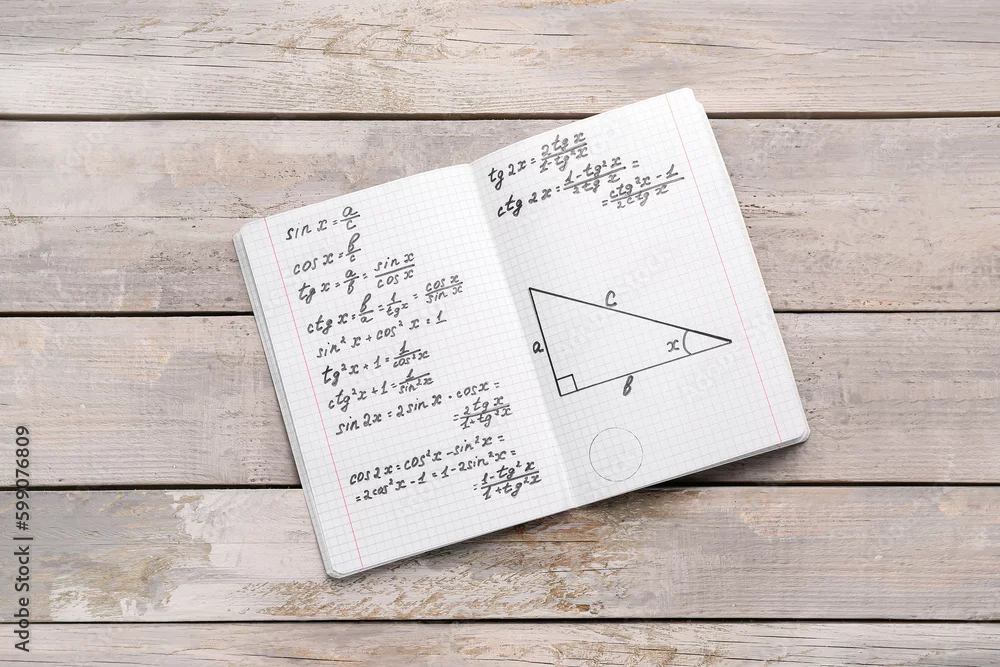 sin x = a/c
cos x = b/c
tg x = a/b = sin x/cos x
ctg x = b/a = 1/tg x = cos x/sin x
sin² x + cos² x = 1
tg² x + 1 = 1/cos² x
ctg² x + 1 = 1/sin² x
sin 2x = 2 sin x · cos x =
= 2tg x/1 + tg² x
cos 2x = cos² x - sin² x =
= 2cos² x - 1 = 1 - 2sin² x =
= 1 - tg² x/1 + tg² x
tg 2x = 2tg x/1 - tg² x
ctg 2x = 1 - tg² x/2tg x =
= ctg² x - 1/2ctg x
c
a
x
b
Adobe Stock | #599076809